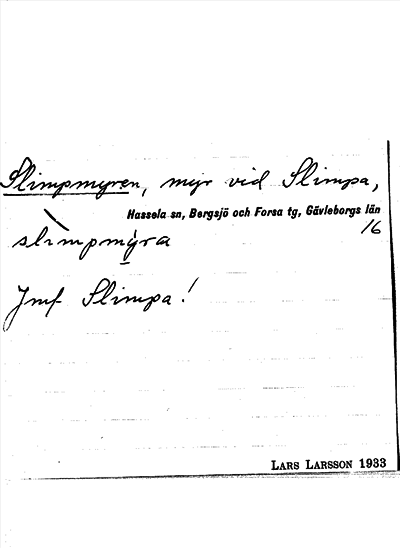 Slimpmyren, myr vid Slimpa,
Hassela sn, Bergsjö och Forsa tg, Gävleborgs län
16
slimpmyra
Jmf Slimpa!
LARS LARSSON 1933